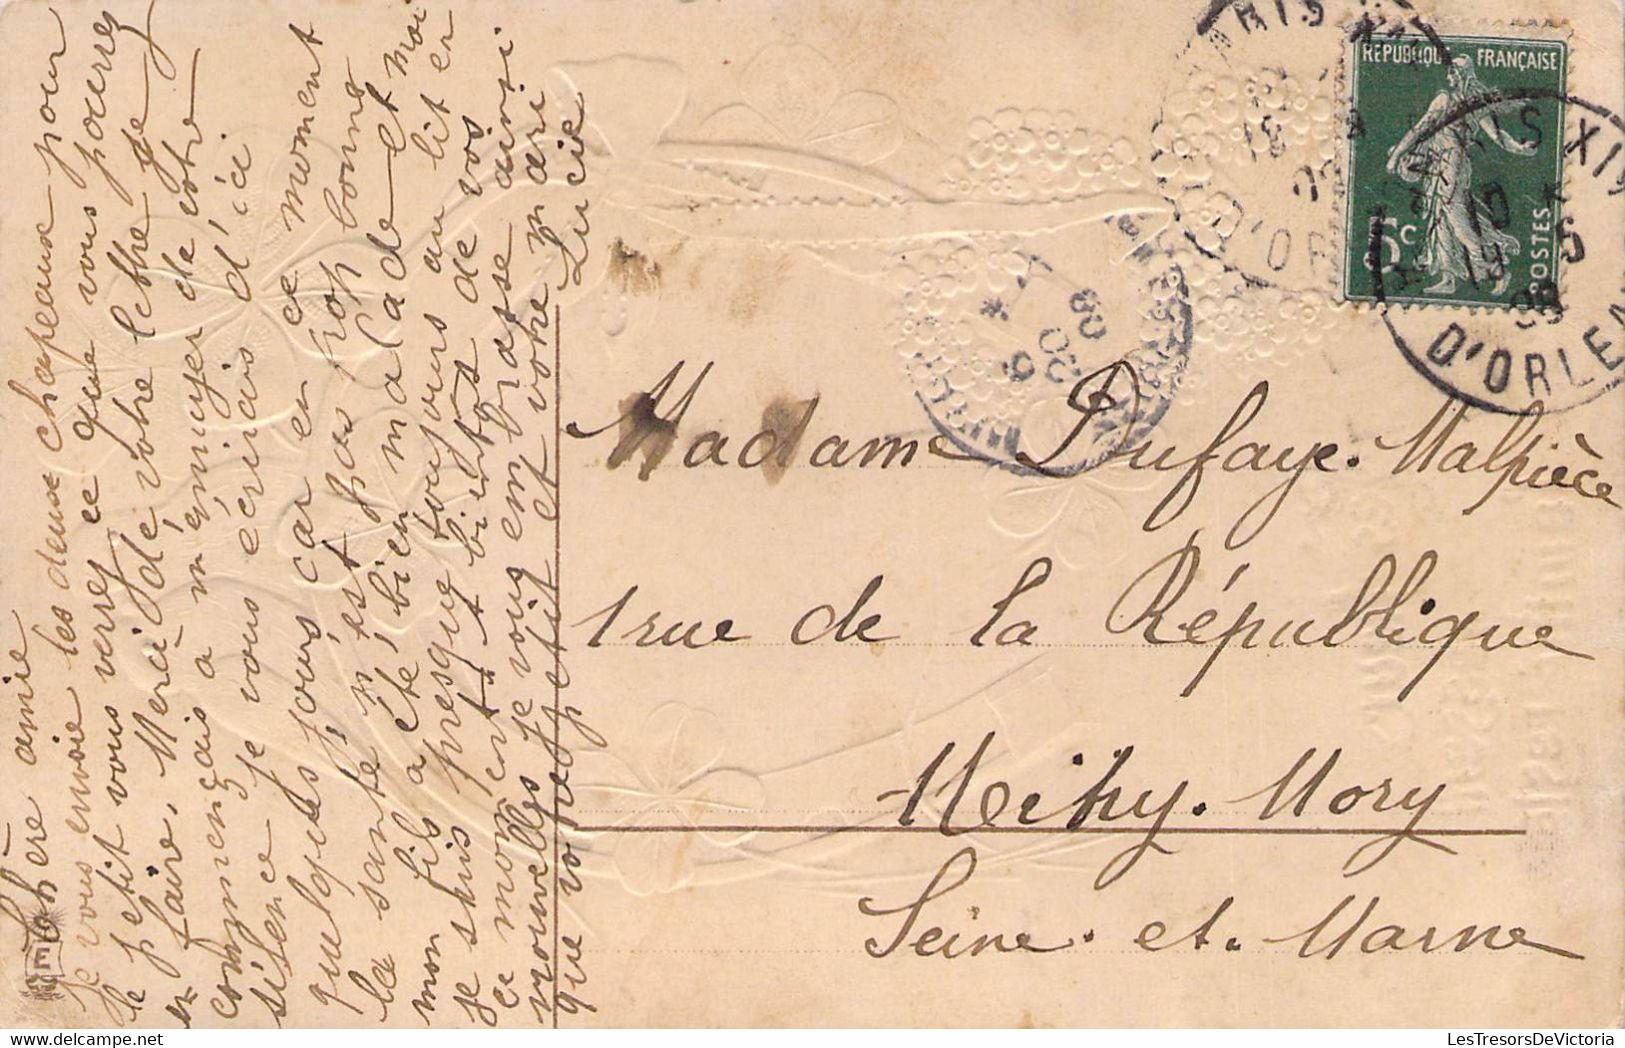 Chère amie
Je vous envoie les deux chapeaux pour
le petit vous verrez ce que vous pourrez
en faire. Merci de votre lettre je
commençais a m'ennuyer de votre
silence je vous écrirais d'ici
quelques jours car en ce moment
la santé n'est pas trop bonne
mon fils a été bien malade et moi
je suis presque toujours au lit en
ce moment à bientôt de vos
nouvelles je vous embrasse ainsi
que votre petit et votre mari
Lucie
REPUBLIQUE FRANÇAISE
5c
POSTES
PARIS XIV
D'ORLEANS
19 5
08
20 5
08
Madame Dufaye. Malpièce
1 rue de la République
Mitry. Mory
Seine. et. Marne
LesTresorsDeVictoria